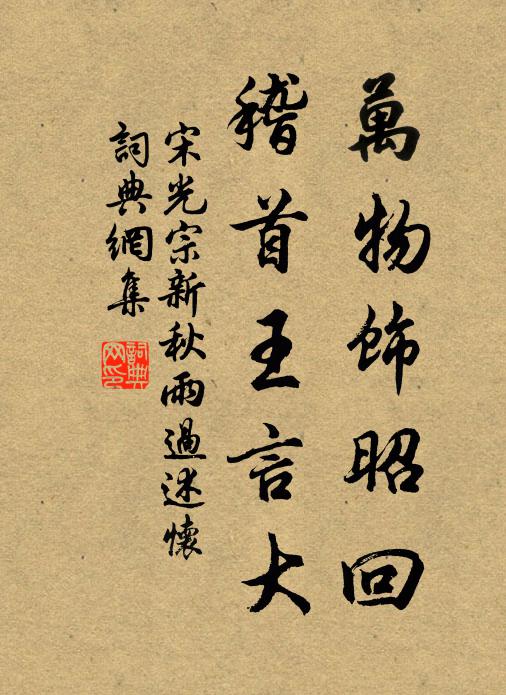 萬物飾昭回
稽首王言大
宋光宗新秋雨過述懷
詞典網集
詞典网印